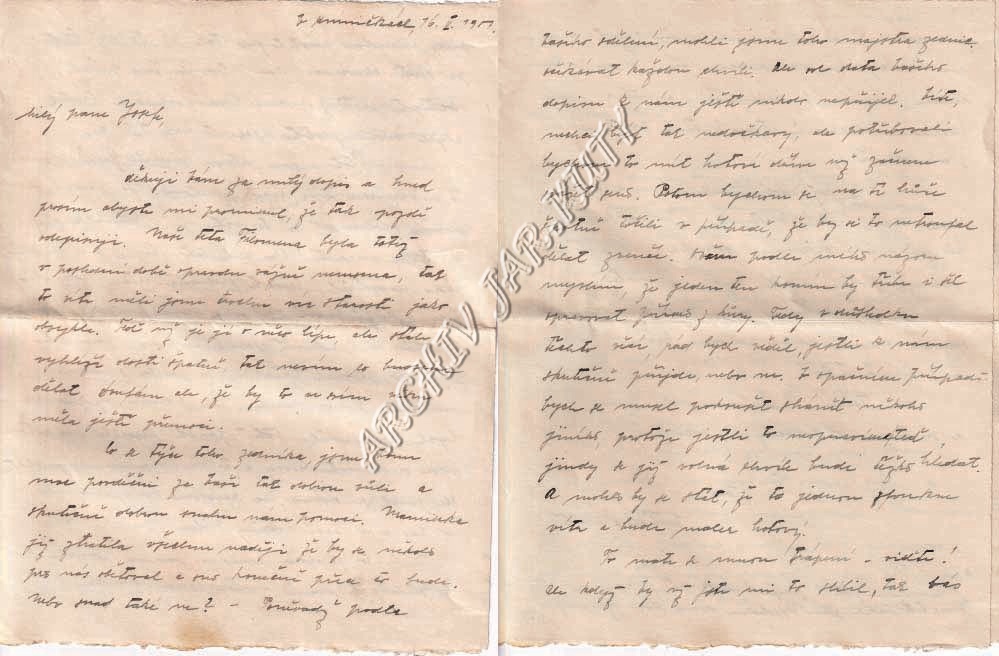 16. II. 1951.
milý pane Josk,
děkuji Vám za milý dopis a hned
prosím abyste mi prominul, že tak pozdě
odepisuji. Naše teta Filomena byla totiž
v poslední době opravdu vážně nemocna, tak
to víte měli jsme trochu více starosti jako
obvykle. Teď už je jí o něco lépe, ale stále
vyhlíží dosti špatně, tak nevím co bude
dělat ale, že by to
měla ještě přemoci.
Co se týče toho zedníka jsme Vám
moc povděčni za Vaši tak dobrou vůli a
skutečně dobrou snahu nám pomoci. Maminka
již ztratila všechnu naději že by se někdo
pro nás obětoval a ono konečně přece to bude.
Nebo snad také ne? - Poněvadž podle
Vašeho sdělení, mohli jsme toho majstra zedníka
očekávat každou chvíli. Ale od data Vašeho
dopisu k nám ještě nikdo nepřijel. Víte,
nechci být tak nedočkavý, ale potřebovali
bychom to mít hotové dřív než začnou
Potom bychom se na to hůře
v případě, že by si to netroufal
dělat zevnitř. podle mého názoru
myslím, že jeden ten komín by třeba i šel
opravovat přímo z hůry. Tedy v důsledku
těchto věcí, rád bych věděl, jestli k nám
skutečně přijde, nebo ne. V opačném případě
bych se musel pokoušet shánět někoho
jiného, protože jestli to neopravíme teď,
jindy se již volná chvíle bude těžko hledat.
A mohlo by se stát, že to jednou zfoukne
vítr a bude malér hotový.
To máte se mnou trápení - viďte!
Ale kdyby by už jste mi to slíbil, tak Vás
ARCHIV JAR. KUTY